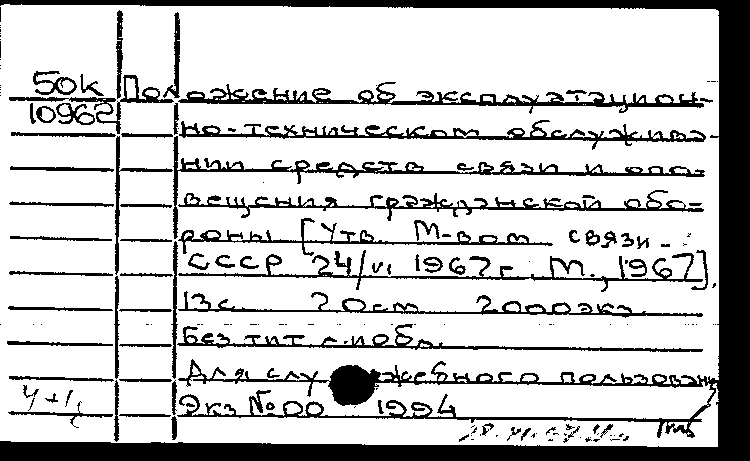 50к Положение об эксплуатацион-
10962 но-техническом обслужива-
нии средств связи и опо-
вещения гражданской обо-
роны [Утв. М-вом связи
СССР 24/VI 1967г. М., 1967].
13с. 20см 2000экз.
Без тит. л. и обл.
Для служебного пользован
Экз №00 1994
4+1